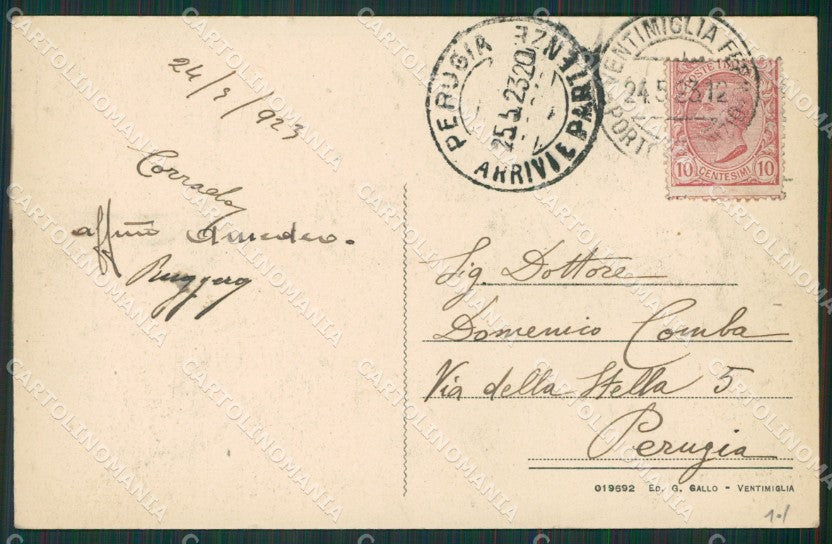 24/5/923
Corrado
affmo Amedeo.
Ruggero
PERUGIA
ARRIVI E PARTENZE
25.5.23 20
VENTIMIGLIA
24.5.23.12
10 CENTESIMI 10
Sig. Dottore
Domenico Comba
Via della Stella 5
Perugia
019692 ED. G. GALLO - VENTIMIGLIA
CARTOLINOMANIA